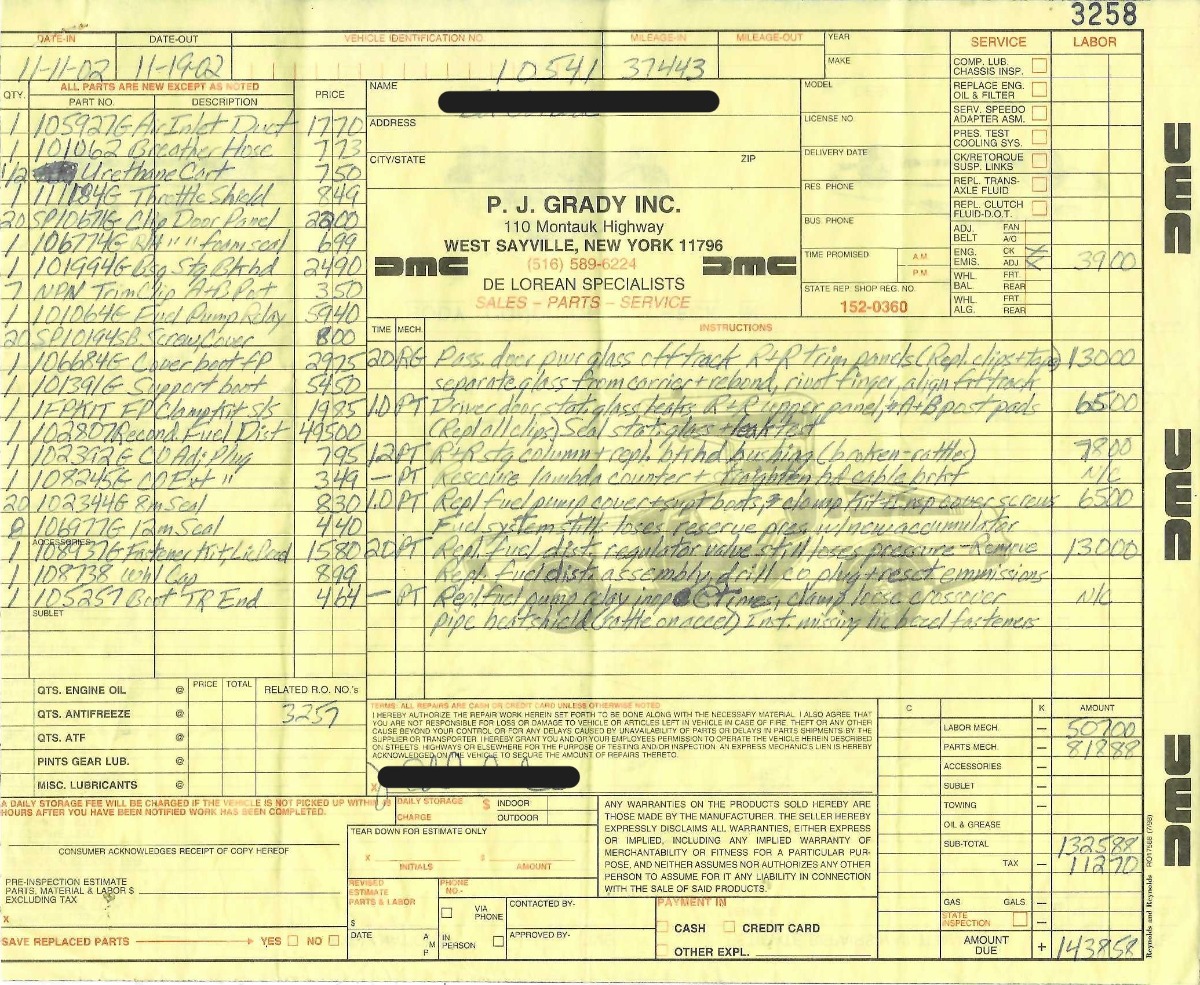 3258
DATE-IN DATE-OUT VEHICLE IDENTIFICATION NO. MILEAGE-IN MILEAGE-OUT
11-11-02 11-19-02 10541 37443
YEAR
MAKE
MODEL
LICENSE NO.
DELIVERY DATE
RES. PHONE
BUS. PHONE
TIME PROMISED A.M. P.M.
STATE REP. SHOP REG. NO.
152-0360
SERVICE LABOR
COMP. LUB. CHASSIS INSP.
REPLACE ENG. OIL & FILTER
SERV. SPEEDO ADAPTER ASM.
PRES. TEST COOLING SYS.
CK/RETORQUE SUSP. LINKS
REPL. TRANS-AXLE FLUID
REPL. CLUTCH FLUID-D.O.T.
ADJ. BELT FAN A/C
ENG. EMIS. CK ADJ 3900
WHL. BAL. FRT. REAR
WHL. ALG. FRT. REAR
NAME
ADDRESS
CITY/STATE ZIP
P. J. GRADY INC.
110 Montauk Highway
WEST SAYVILLE, NEW YORK 11796
(516) 589-6224
DMC DMC
DE LOREAN SPECIALISTS
SALES – PARTS – SERVICE
ALL PARTS ARE NEW EXCEPT AS NOTED
QTY. PART NO. DESCRIPTION PRICE
1 105927G Air Inlet Duct 1770
1 101062 Breather Hose 773
1/2 Urethane Cart 750
1 111184G Throttle Shield 849
20 SP10671G Clip Door Panel 2200
1 106774G R/H " " foam seal 699
1 101994G Bsg Stg Blkhd 2490
7 NPN Trim Clip A+B Pst 350
1 101064G Fuel Pump Relay 5940
20 SP10194SB Screw, Cover 800
1 106684G Cover boot FP 2975
1 101391G Support boot 5450
1 1FPKIT FP Clamp Kit s/s 1985
1 102807 Recond. Fuel Dist 49500
1 102392G CO Adj Plug 795
1 108245G CO Ext " 349
20 102344G 8m Seal 830
8 106977G 12m Seal 440
ACCESSORIES
1 108937G Fastener Kit Lic Bezel 1580
1 108738 Whl Cap 899
1 105257 Boot TR End 464
SUBLET
TIME MECH. INSTRUCTIONS
20 RG Pass. door pwr glass off track R+R trim panels (Repl. clips + tape) 13000
separate glass from carrier + rebond, rivot finger, align fit track
1.0 PT Driver door stat. glass leaks R+R upper panel, + A+B post pads 6500
(Repl all clips) Seal stat. glass + leak test
1.2 PT R+R stg column + repl. blkhd bushing (broken-rattles) 7800
— PT Resecure lambda counter + cable brkt N/C
1.0 PT Repl fuel pump cover + supt boots, + clamp kit cover screws 6500
Fuel system still loses reserve pres. w/new accumulator
20 PT Repl. fuel dist. regulator valve still loses pressure - Remove 13000
Repl. fuel dist. assembly, drill co plug + reset emmissions
— PT Repl fuel pump relay inop @ times, clamp loose crossover N/C
pipe heatshield (rattle on accel) Inst. missing lic bezel fasteners
QTS. ENGINE OIL @ PRICE TOTAL RELATED R.O. NO.'s
QTS. ANTIFREEZE @ 3257
QTS. ATF @
PINTS GEAR LUB. @
MISC. LUBRICANTS @
TERMS: ALL REPAIRS ARE CASH OR CREDIT CARD UNLESS OTHERWISE NOTED
I HEREBY AUTHORIZE THE REPAIR WORK HEREIN SET FORTH TO BE DONE ALONG WITH THE NECESSARY MATERIAL. I ALSO AGREE THAT
YOU ARE NOT RESPONSIBLE FOR LOSS OR DAMAGE TO VEHICLE OR ARTICLES LEFT IN VEHICLE IN CASE OF FIRE. THEFT OR ANY OTHER
CAUSE BEYOND YOUR CONTROL OR FOR ANY DELAYS CAUSED BY UNAVAILABILITY OF PARTS OR DELAYS IN PARTS SHIPMENTS BY THE
SUPPLIER OR TRANSPORTER. I HEREBY GRANT YOU AND/OR YOUR EMPLOYEES PERMISSION TO OPERATE THE VEHICLE HEREIN DESCRIBED
ON STREETS. HIGHWAYS OR ELSEWHERE FOR THE PURPOSE OF TESTING AND/OR INSPECTION. AN EXPRESS MECHANIC'S LIEN IS HEREBY
ACKNOWLEDGED ON THE VEHICLE TO SECURE THE AMOUNT OF REPAIRS THERETO.
X
C K AMOUNT
LABOR MECH. — 50700
PARTS MECH. — 81888
ACCESSORIES —
SUBLET —
TOWING —
OIL & GREASE —
SUB-TOTAL 132588
TAX — 11270
GAS GALS —
STATE INSPECTION —
AMOUNT DUE + 143858
A DAILY STORAGE FEE WILL BE CHARGED IF THE VEHICLE IS NOT PICKED UP WITHIN
HOURS AFTER YOU HAVE BEEN NOTIFIED WORK HAS BEEN COMPLETED.
DAILY STORAGE CHARGE $ INDOOR OUTDOOR
CONSUMER ACKNOWLEDGES RECEIPT OF COPY HEREOF
PRE-INSPECTION ESTIMATE
PARTS, MATERIAL & LABOR $
EXCLUDING TAX
X
SAVE REPLACED PARTS YES NO
TEAR DOWN FOR ESTIMATE ONLY
X $
INITIALS AMOUNT
REVISED ESTIMATE PARTS & LABOR
$
DATE A M P
PHONE NO.-
VIA PHONE
IN PERSON
CONTACTED BY-
APPROVED BY-
ANY WARRANTIES ON THE PRODUCTS SOLD HEREBY ARE
THOSE MADE BY THE MANUFACTURER. THE SELLER HEREBY
EXPRESSLY DISCLAIMS ALL WARRANTIES, EITHER EXPRESS
OR IMPLIED, INCLUDING ANY IMPLIED WARRANTY OF
MERCHANTABILITY OR FITNESS FOR A PARTICULAR PUR-
POSE, AND NEITHER ASSUMES NOR AUTHORIZES ANY OTHER
PERSON TO ASSUME FOR IT ANY LIABILITY IN CONNECTION
WITH THE SALE OF SAID PRODUCTS.
PAYMENT IN
CASH CREDIT CARD
OTHER EXPL.
DMC
DMC
DMC
Reynolds and Reynolds RO1756B (7/98)